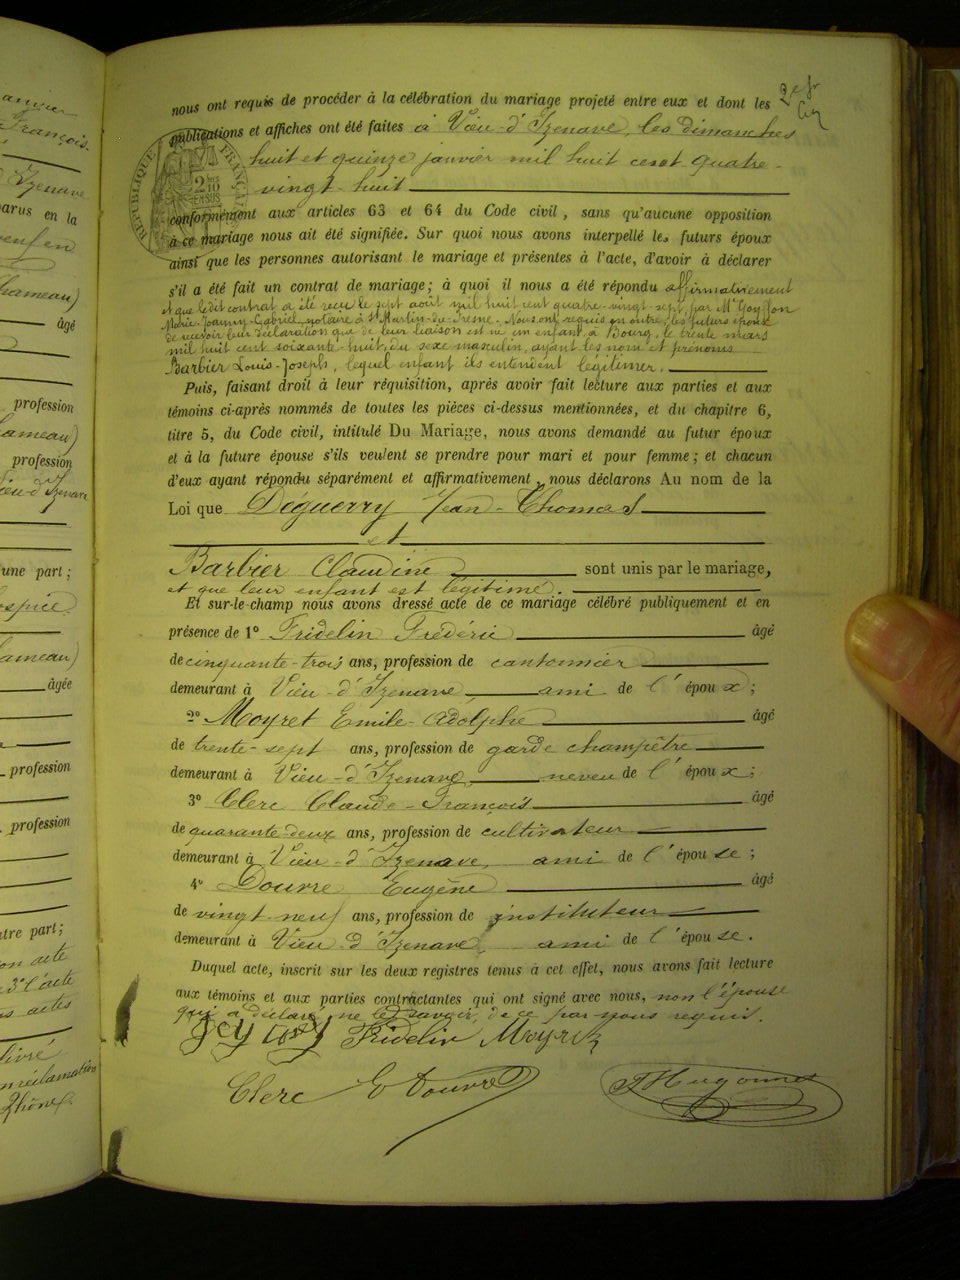 nous ont requis de procéder à la célébration du mariage projeté entre eux et dont les
publications et affiches ont été faites à Vieu-d'Izenave, les dimanches
huit et quinze janvier mil huit cent quatre-
vingt-huit
RÉPUBLIQUE FRANÇAISE
conformément aux articles 63 et 64 du Code civil, sans qu'aucune opposition
à ce mariage nous ait été signifiée. Sur quoi nous avons interpellé les futurs époux
ainsi que les personnes autorisant le mariage et présentes à l'acte, d'avoir à déclarer
s'il a été fait un contrat de mariage; à quoi il nous a été répondu affirmativement
et que ledit contrat a été reçu le sept août mil huit cent quatre-vingt-sept, par Me Goyffon
Marie-Joanny-Gabriel, notaire à St Martin-du-Fresne. Nous ont requis en outre, les futurs époux
de recevoir leur déclaration que de leur liaison est né un enfant, à Bourg, le trente mars
mil huit cent soixante-huit, du sexe masculin, ayant les nom et prénoms
Barbier Louis-Joseph, lequel enfant ils entendent légitimer.
Puis, faisant droit à leur réquisition, après avoir fait lecture aux parties et aux
témoins ci-après nommés de toutes les pièces ci-dessus mentionnées, et du chapitre 6,
titre 5, du Code civil, intitulé Du Mariage, nous avons demandé au futur époux
et à la future épouse s'ils veulent se prendre pour mari et pour femme; et chacun
d'eux ayant répondu séparément et affirmativement, nous déclarons Au nom de la
Loi que Déguerry Jean-Thomas
et
Barbier Claudine sont unis par le mariage,
et que leur enfant est légitimé.
Et sur-le-champ nous avons dressé acte de ce mariage célébré publiquement et en
présence de 1° Fridelin Frédéric âgé
de cinquante-trois ans, profession de cantonnier
demeurant à Vieu-d'Izenave, ami de l'époux;
2° Moyret Emile-Adolphe âgé
de trente-sept ans, profession de garde champêtre
demeurant à Vieu-d'Izenave, neveu de l'époux;
3° Clerc Claude-François âgé
de quarante-deux ans, profession de cultivateur
demeurant à Vieu-d'Izenave, ami de l'épouse;
4° Douvre Eugène âgé
de vingt-neuf ans, profession de instituteur
demeurant à Vieu-d'Izenave, ami de l'épouse.
Duquel acte, inscrit sur les deux registres tenus à cet effet, nous avons fait lecture
aux témoins et aux parties contractantes qui ont signé avec nous, non l'épouse
qui a déclaré ne le savoir, de ce par nous requis.
Fridelin Moyret
Clerc E Douvre Hugonnet